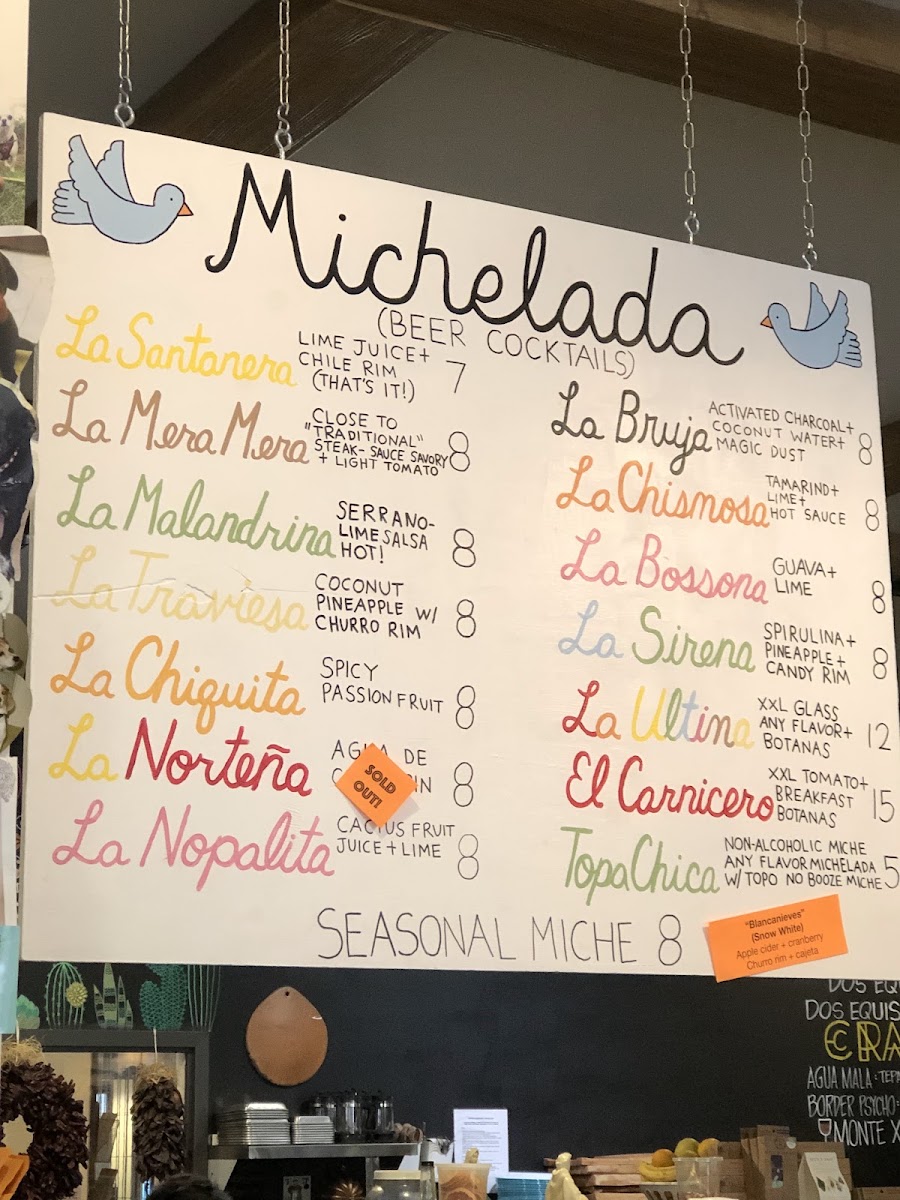 Michelada
(BEER COCKTAILS)
La Santanera
LIME JUICE+
CHILE RIM
(THAT'S IT!)
7
La Mera Mera
CLOSE TO
"TRADITIONAL"
STEAK-SAUCE SAVORY
+ LIGHT TOMATO
8
La Malandrina
SERRANO-
LIME SALSA
HOT!
8
La Traviesa
COCONUT
PINEAPPLE W/
CHURRO RIM
8
La Chiquita
SPICY
PASSION FRUIT
8
La Norteña
AGUA DE
SOLD
OUT!
8
La Nopalita
CACTUS FRUIT
JUICE+LIME
8
La Bruja
ACTIVATED CHARCOAL+
COCONUT WATER+
MAGIC DUST
8
La Chismosa
TAMARIND+
LIME+
HOT SAUCE
8
La Bossona
GUAVA+
LIME
8
La Sirena
SPIRULINA+
PINEAPPLE+
CANDY RIM
8
La Ultina
XXL GLASS
ANY FLAVOR+
BOTANAS
12
El Carnicero
XXL TOMATO+
BREAKFAST
BOTANAS
15
TopaChica
NON-ALCOHOLIC MICHE
ANY FLAVOR MICHELADA
W/ TOPO NO BOOZE MICHE
5
SEASONAL MICHE 8
"Blancanieves"
(Snow White)
Apple cider + cranberry
Churro rim + cajeta
DOS EQU
DOS EQUIS
CRA
AGUA MALA: TEPA
BORDER PSYCHO:
MONTE X